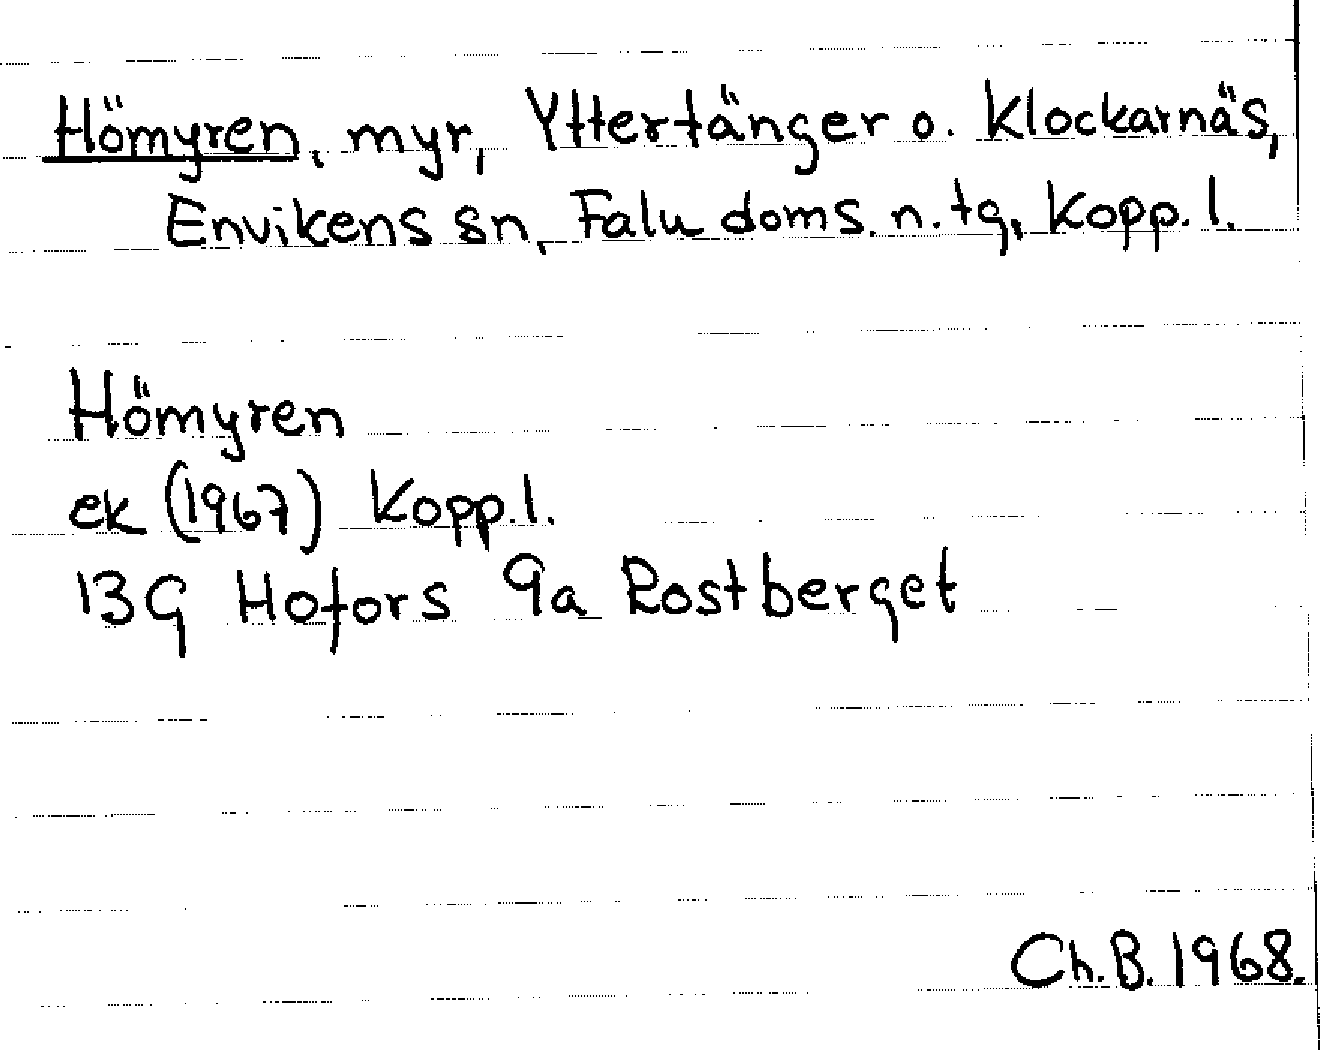 Hömyren, myr, Yttertänger o. Klockarnäs,
Envikens sn, Falu doms. n. tg, Kopp. l.
Hömyren
ek (1967) Kopp. l.
13G Hofors 9a Rostberget
Ch. B. 1968.